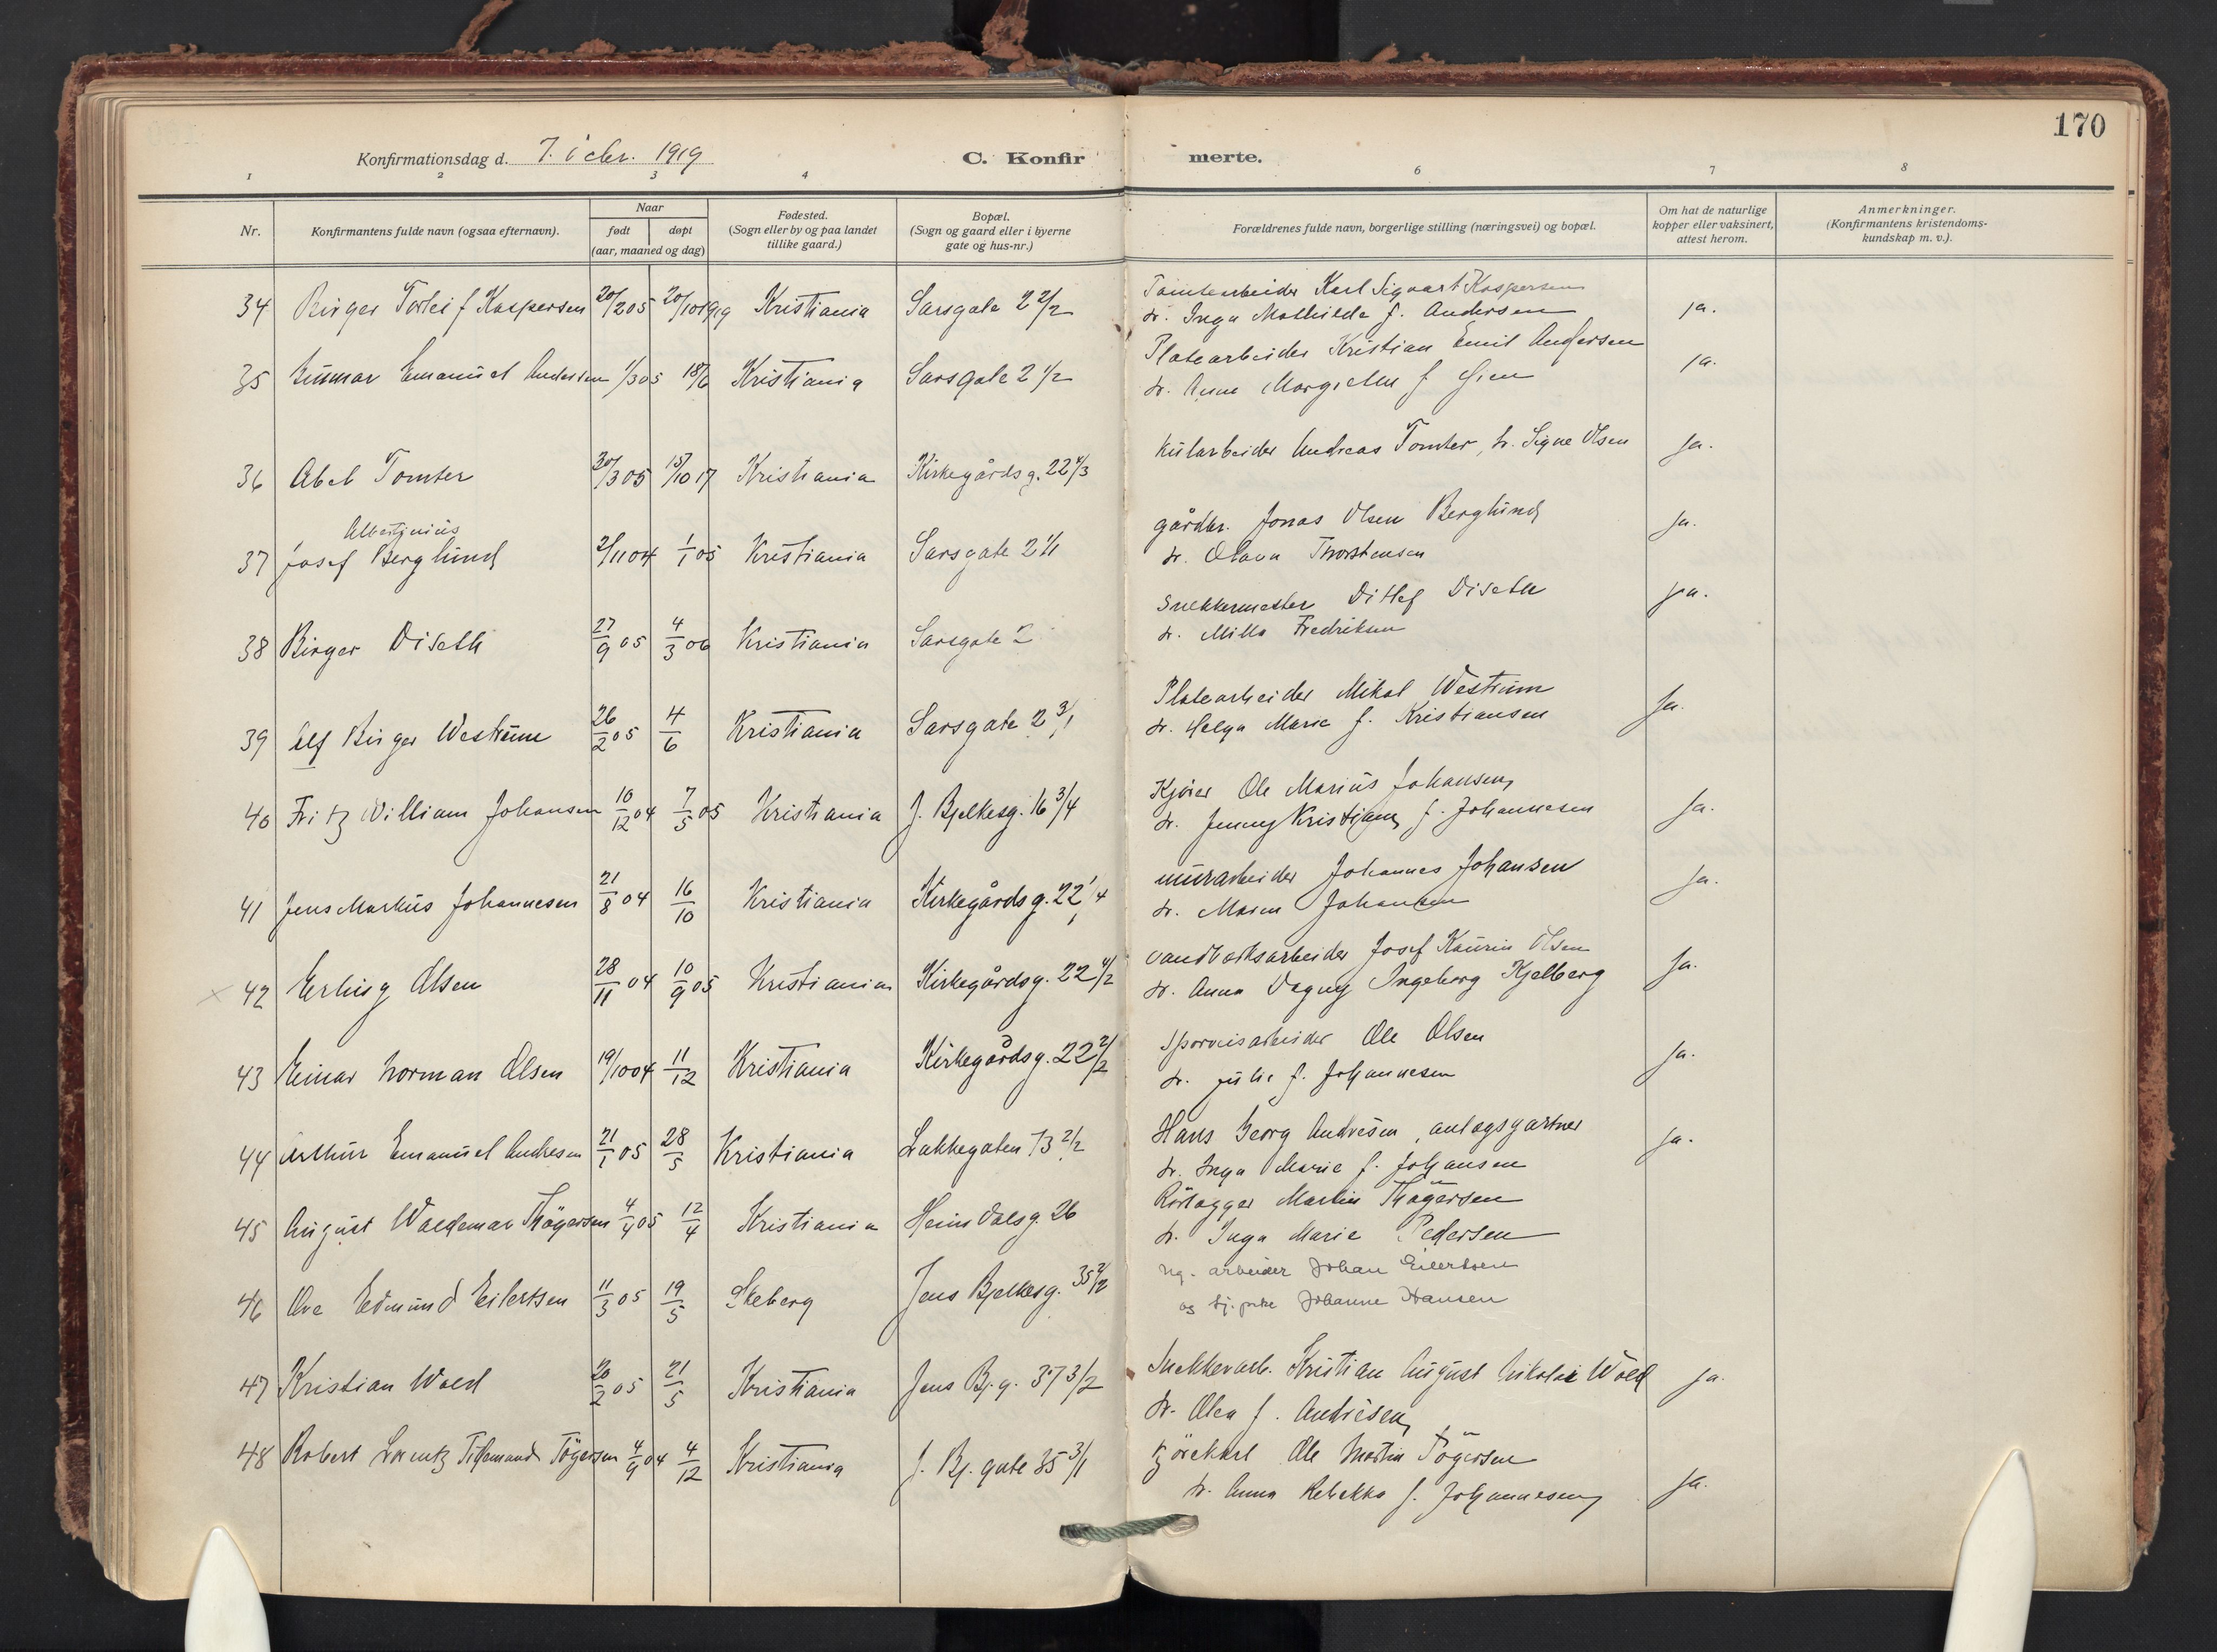 170
Konfirmationsdag d. 1919
C. Konfirmerte.
1 2 3 4 6 7 8
Nr.
Konfirmantens fulde navn (ogsaa efternavn).
Naar
født døpt
(aar, maaned og dag)
Fødested.
(Sogn eller by og paa landet
tillike gaard.)
Bopæl.
(Sogn og gaard eller i byerne
gate og hus-nr.)
Forældrenes fulde navn, borgerlige stilling (næringsvei) og bopæl.
Om hat de naturlige
kopper eller vaksinert,
attest herom.
Anmerkninger.
(Konfirmantens kristendoms-
kundskap m. v.).
34 Birger Torleif Kaspersen 20/2 05 20/10 1919 Kristiania Sarsgate 2 2/2 Karl Sigvart Kaspersen ja.
h. Inga Mathilde f. Andersen
35 Gunnar Emanuel Andersen 1/3 05 18/6 Kristiania Sarsgate 2 1/2 Platearbeider Kristian Emil Andersen ja.
h. Anna f
36 Abel Tomter 30/3 05 15/10 17 Kristiania Kirkegårdsg. 22 4/3 Kularbeider Andreas Tomter, h. Signe Olsen ja.
Albertinius
37 Josef Berglund 2/11 04 1/1 05 Kristiania Sarsgate 2 1/1 gårdbr. Jonas Olsen Berglund ja.
h. Olava Thorstensen
38 Birger Diseth 27/9 05 4/3 06 Kristiania Sarsgate 2 Snekkermester Ditlef Diseth ja.
h. Milla Fredriksen
39 Alf Birger Westrum 26/2 05 4/6 Kristiania Sarsgate 2 3/1 Platearbeider Mikal Westrum ja.
h. Helga Marie f. Kristiansen
40 Fritz William Johansen 10/12 04 7/5 05 Kristiania J. Bjelkesg. 16 3/4 Kjører Ole Marius Johansen ja.
h. Jenny Kristiane f. Johannesen
41 Jens Markus Johannesen 21/8 04 16/10 Kristiania Kirkegårdsg. 22 1/4 murarbeider Johannes Johansen ja.
h. Maren Johansen
42 Erling Olsen 28/11 04 10/9 05 Kristiania Kirkegårdsg. 22 4/2 vandverksarbeider Josef Kaurin Olsen ja.
h. Anna Dagny Ingeborg Kjelberg
43 Einar Norman Olsen 19/10 04 11/12 Kristiania Kirkegårdsg. 22 2/2 Sporveisarbeider Ole Olsen ja.
h. Julie f. Johannesen
44 Arthur Emanuel Andresen 21/1 05 28/5 Kristiania Lakkegaten 73 2/2 Hans Georg Andresen, anlagsgartner ja.
h. Inga Marie f. Johansen
45 August Waldemar Thøgersen 4/4 05 12/4 Kristiania Heimdalsg. 26 Rørlægger Martin Thøgersen
h. Inga Marie Pedersen
46 Ove Edmund Eilertsen 11/3 05 19/5 Skeberg Jens Bjelkesg. 35 2/2 ug. arbeider Johan Eilertsen
og tj.pike Johanne Hansen
47 Kristian Wold 20/2 05 21/5 Kristiania Jens Bj.g. 37 3/2 Snekkerarb. Kristian August Nikolai Wold ja.
h. Olea f. Andresen
48 Robert Lorentz Tidemand Tøgersen 4/9 04 4/12 Kristiania J. Bj. gate 35 3/1 kjørekarl Ole Martin Tøgersen ja.
h. Anna Rebekka f. Johannesen